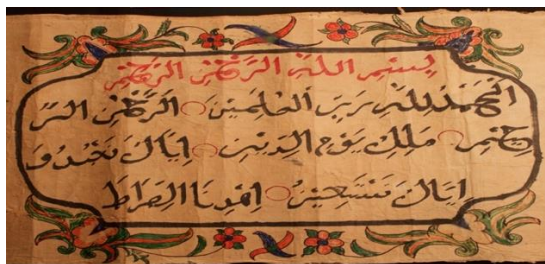 بِسْمِ اللهِ الرَّحْمٰنِ الرَّحِيْمِ
اَلْحَمْدُ لِلّٰهِ رَبِّ الْعٰلَمِيْنَ ○ اَلرَّحْمٰنِ الرَّ
حِيْمِ ○ مٰلِكِ يَوْمِ الدِّيْنِ ○ اِيَّاكَ نَعْبُدُ وَ
اِيَّاكَ نَسْتَعِيْنُ ○ اِهْدِنَا الصِّرَاطَ